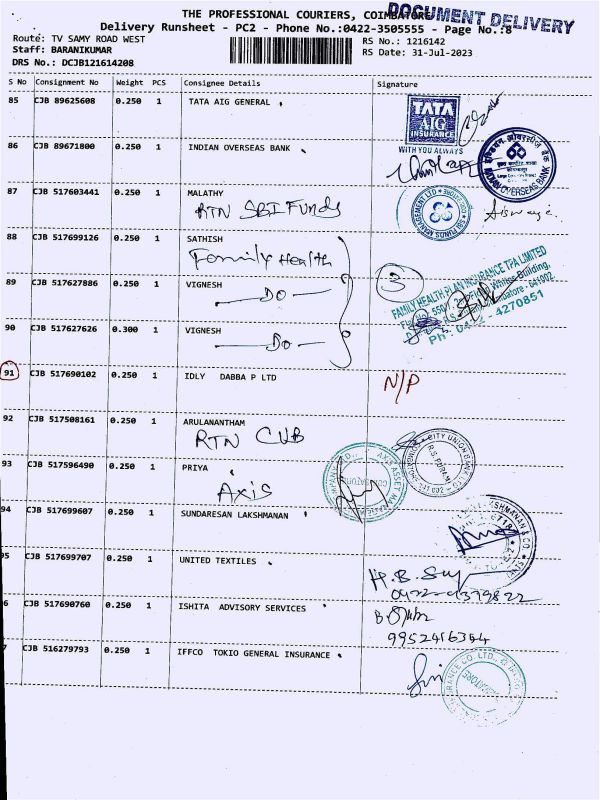 THE PROFESSIONAL COURIERS, COIMBATORE
DOCUMENT DELIVERY
Delivery Runsheet - PC2 - Phone No.:0422-3505555 - Page No.:8
Route: TV SAMY ROAD WEST
RS No.: 1216142
Staff: BARANIKUMAR
RS Date: 31-Jul-2023
DRS No.: DCJB121614208
S No Consignment No Weight PCS Consignee Details Signature
85 CJB 89625608 0.250 1 TATA AIG GENERAL
TATA
AIG
INSURANCE
WITH YOU ALWAYS
86 CJB 89671800 0.250 1 INDIAN OVERSEAS BANK
INDIAN OVERSEAS BANK
87 CJB 517603441 0.250 1 MALATHY
RTN SBI Funds
SBI FUNDS MANAGEMENT LTD
88 CJB 517699126 0.250 1 SATHISH
Family Health
89 CJB 517627886 0.250 1 VIGNESH
Do
3
FAMILY HEALTH PLAN INSURANCE TPA LIMITED
Building,
641002
Ph : 0422 - 4270851
90 CJB 517627626 0.300 1 VIGNESH
Do
91 CJB 517690102 0.250 1 IDLY DABBA P LTD
N/P
92 CJB 517508161 0.250 1 ARULANANTHAM
RTN CUB
CITY UNION BANK
R.S. PURAM
93 CJB 517596490 0.250 1 PRIYA
AXIS
AXIS ASSET
94 CJB 517699607 0.250 1 SUNDARESAN LAKSHMANAN
95 CJB 517699707 0.250 1 UNITED TEXTILES
6 CJB 517690760 0.250 1 ISHITA ADVISORY SERVICES
9952416364
7 CJB 516279793 0.250 1 IFFCO TOKIO GENERAL INSURANCE
INSURANCE CO. LTD.